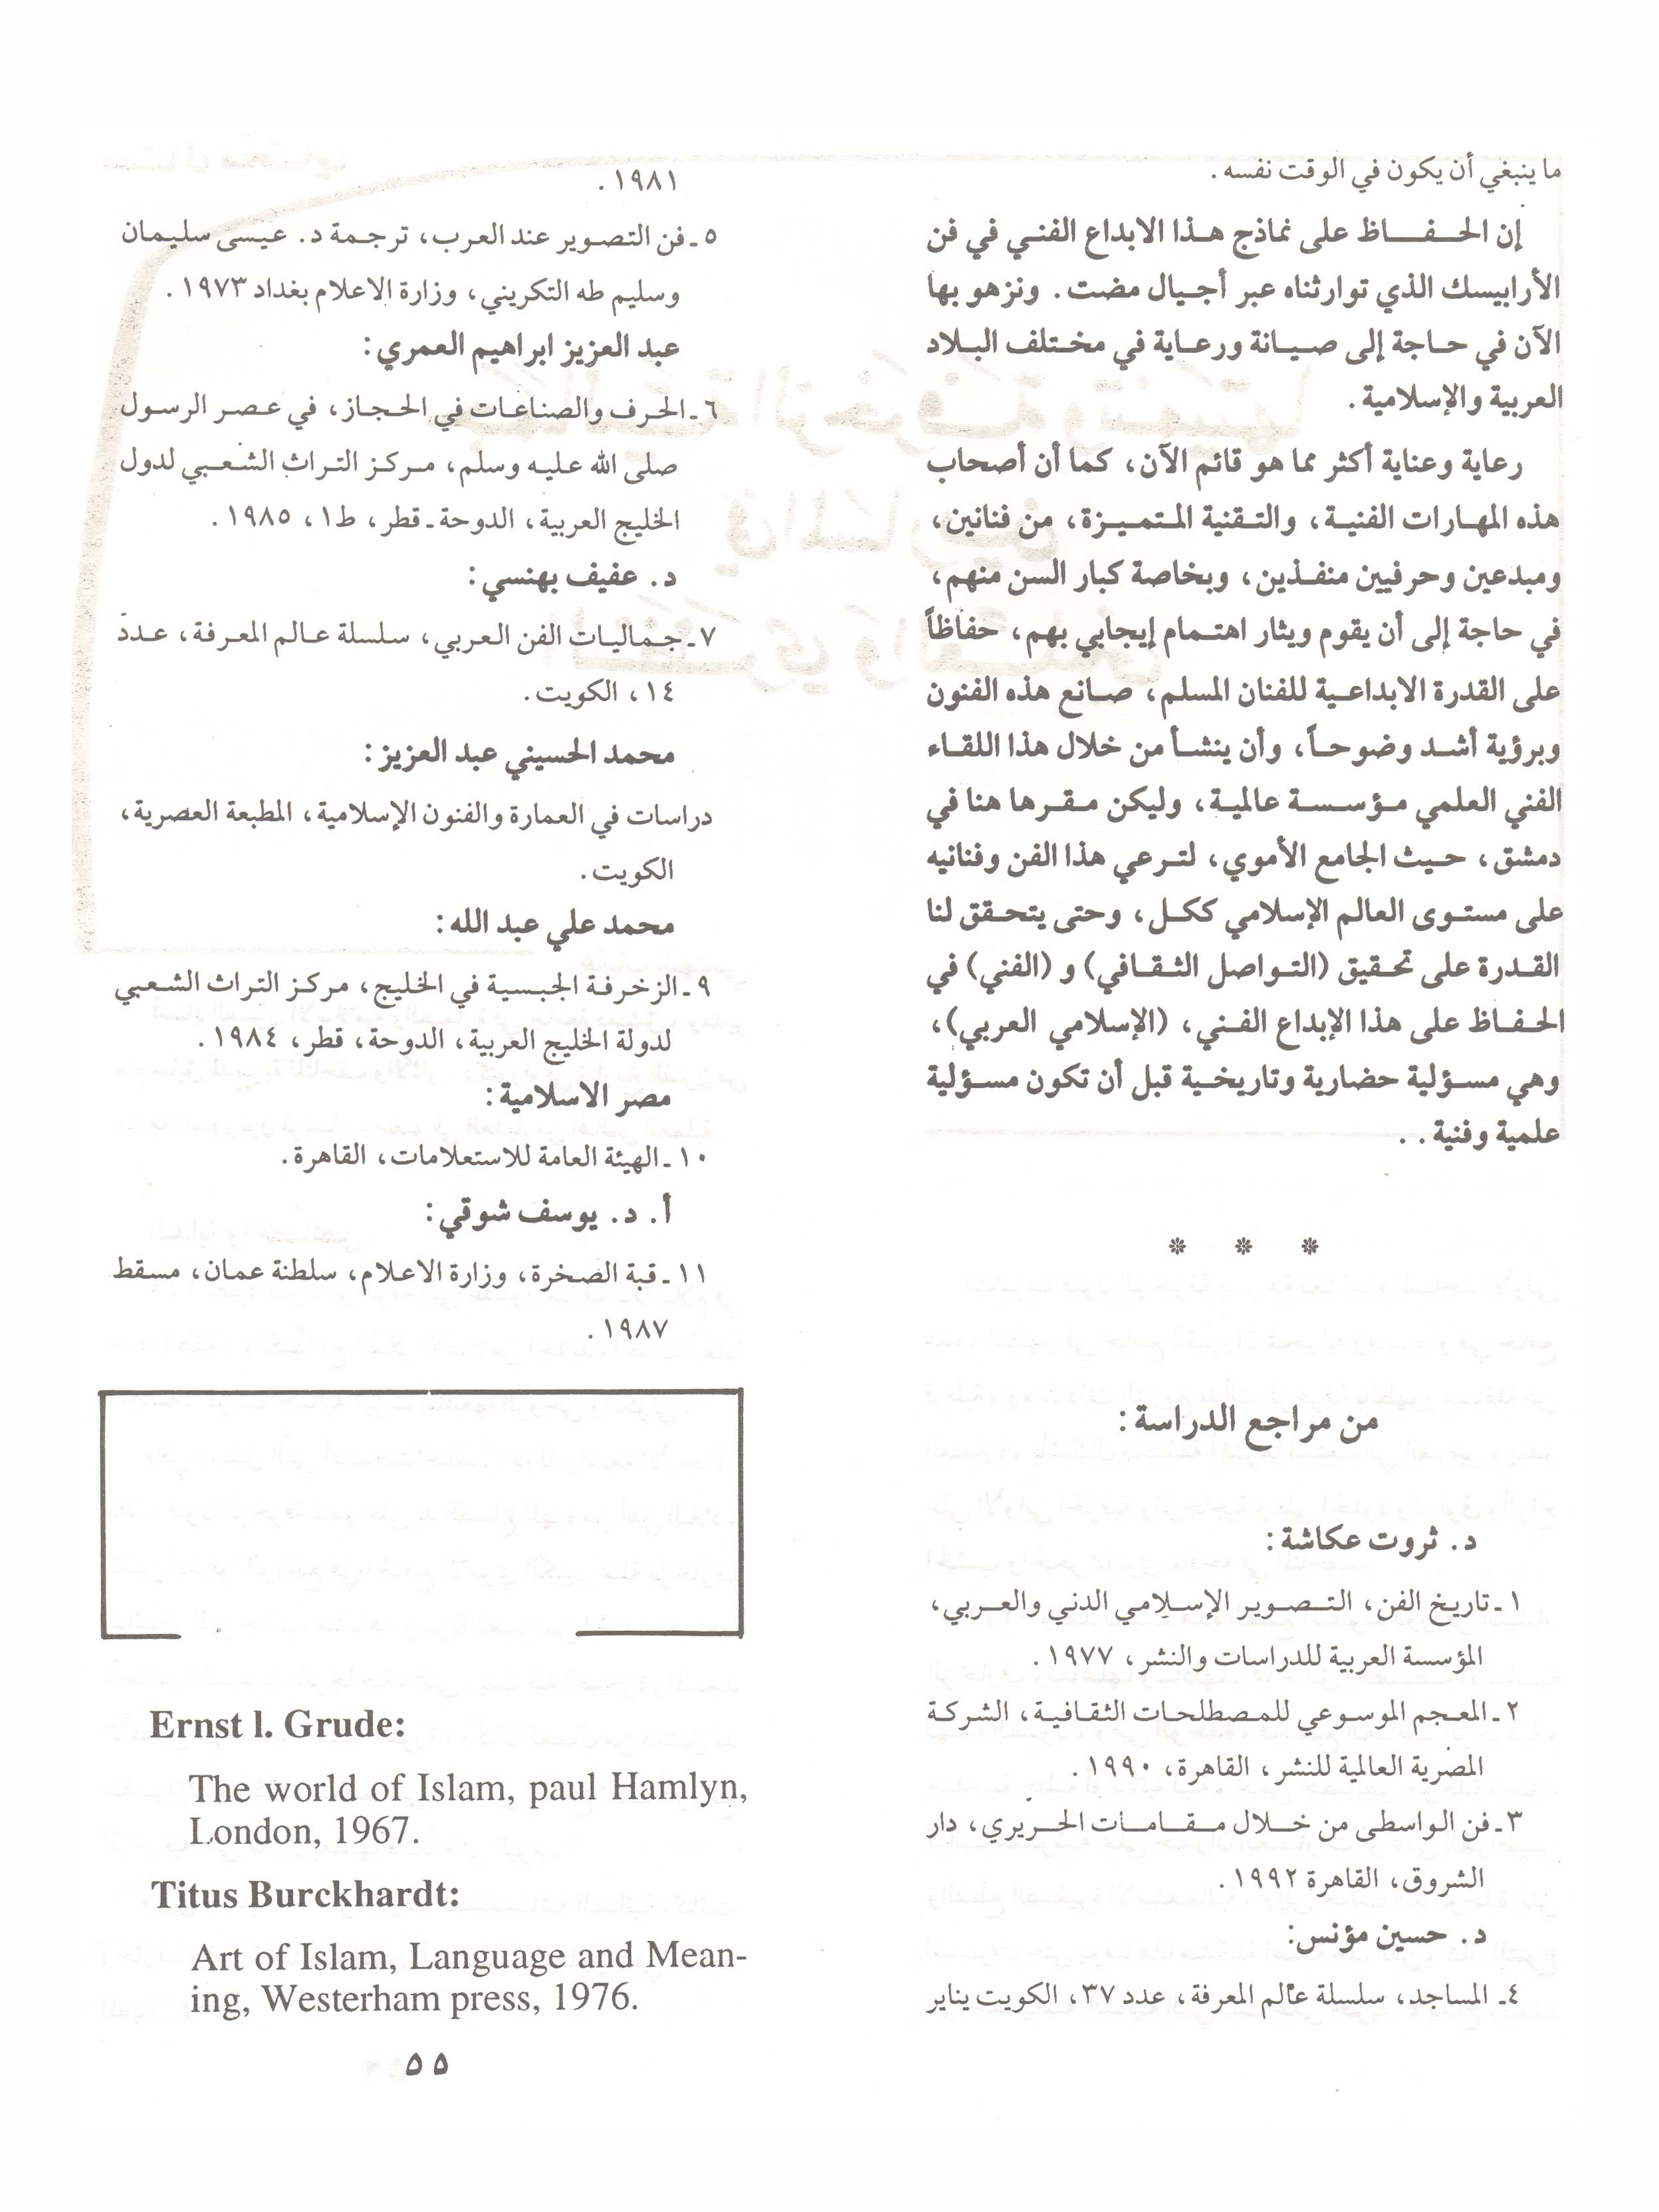 ما ينبغي أن يكون في الوقت نفسه.
إن الحفاظ على نماذج هذا الابداع الفني في فن
الأرابيسك الذي توارثناه عبر أجيال مضت. ونزهو بها
الآن في حاجة إلى صيانة ورعاية في مختلف البلاد
العربية والإسلامية.
رعاية وعناية أكثر مما هو قائم الآن، كما أن أصحاب
هذه المهارات الفنية، والتقنية المتميزة، من فنانين،
ومبدعين وحرفيين منفذين، وبخاصة كبار السن منهم،
في حاجة إلى أن يقوم ويثار اهتمام إيجابي بهم، حفاظاً
على القدرة الابداعية للفنان المسلم، صانع هذه الفنون
وبرؤية أشد وضوحاً، وأن ينشأ من خلال هذا اللقاء
الفني العلمي مؤسسة عالمية، وليكن مقرها هنا في
دمشق، حيث الجامع الأموي، لترعي هذا الفن وفنانيه
على مستوى العالم الإسلامي ككل، وحتى يتحقق لنا
القدرة على تحقيق (التواصل الثقافي) و (الفني) في
الحفاظ على هذا الإبداع الفني، (الإسلامي العربي)،
وهي مسؤلية حضارية وتاريخية قبل أن تكون مسؤلية
علمية وفنية . .
* * *
من مراجع الدراسة:
د. ثروت عكاشة:
١ـ تاريخ الفن، التصوير الإسلامي الدني والعربي،
المؤسسة العربية للدراسات والنشر، ١٩٧٧.
٢ـ المعجم الموسوعي للمصطلحات الثقافية، الشركة
المصرية العالمية للنشر، القاهرة، ١٩٩٠.
٣ـ فن الواسطى من خلال مقامات الحريري، دار
الشروق، القاهرة ١٩٩٢.
د. حسين مؤنس:
٤ـ المساجد، سلسلة عالم المعرفة، عدد ٣٧، الكويت يناير
١٩٨١.
٥ـ فن التصوير عند العرب، ترجمة د. عيسى سليمان
وسليم طه التكريني، وزارة الاعلام بغداد ١٩٧٣.
عبد العزيز ابراهيم العمري:
٦ـ الحرف والصناعات في الحجاز، في عصر الرسول
صلى الله عليه وسلم، مركز التراث الشعبي لدول
الخليج العربية، الدوحة ـ قطر، ط١، ١٩٨٥.
د. عفيف بهنسي:
٧ـ جماليات الفن العربي، سلسلة عالم المعرفة، عدد
١٤، الكويت.
محمد الحسيني عبد العزيز:
دراسات في العمارة والفنون الإسلامية، المطبعة العصرية،
الكويت.
محمد علي عبد الله:
٩ـ الزخرفة الجبسية في الخليج، مركز التراث الشعبي
لدولة الخليج العربية، الدوحة، قطر، ١٩٨٤.
مصر الاسلامية:
١٠ـ الهيئة العامة للاستعلامات، القاهرة.
أ. د. يوسف شوقي:
١١ـ قبة الصخرة، وزارة الاعلام، سلطنة عمان، مسقط
١٩٨٧.
Ernst l. Grude:
The world of Islam, paul Hamlyn,
London, 1967.
Titus Burckhardt:
Art of Islam, Language and Mean-
ing, Westerham press, 1976.
٥٥